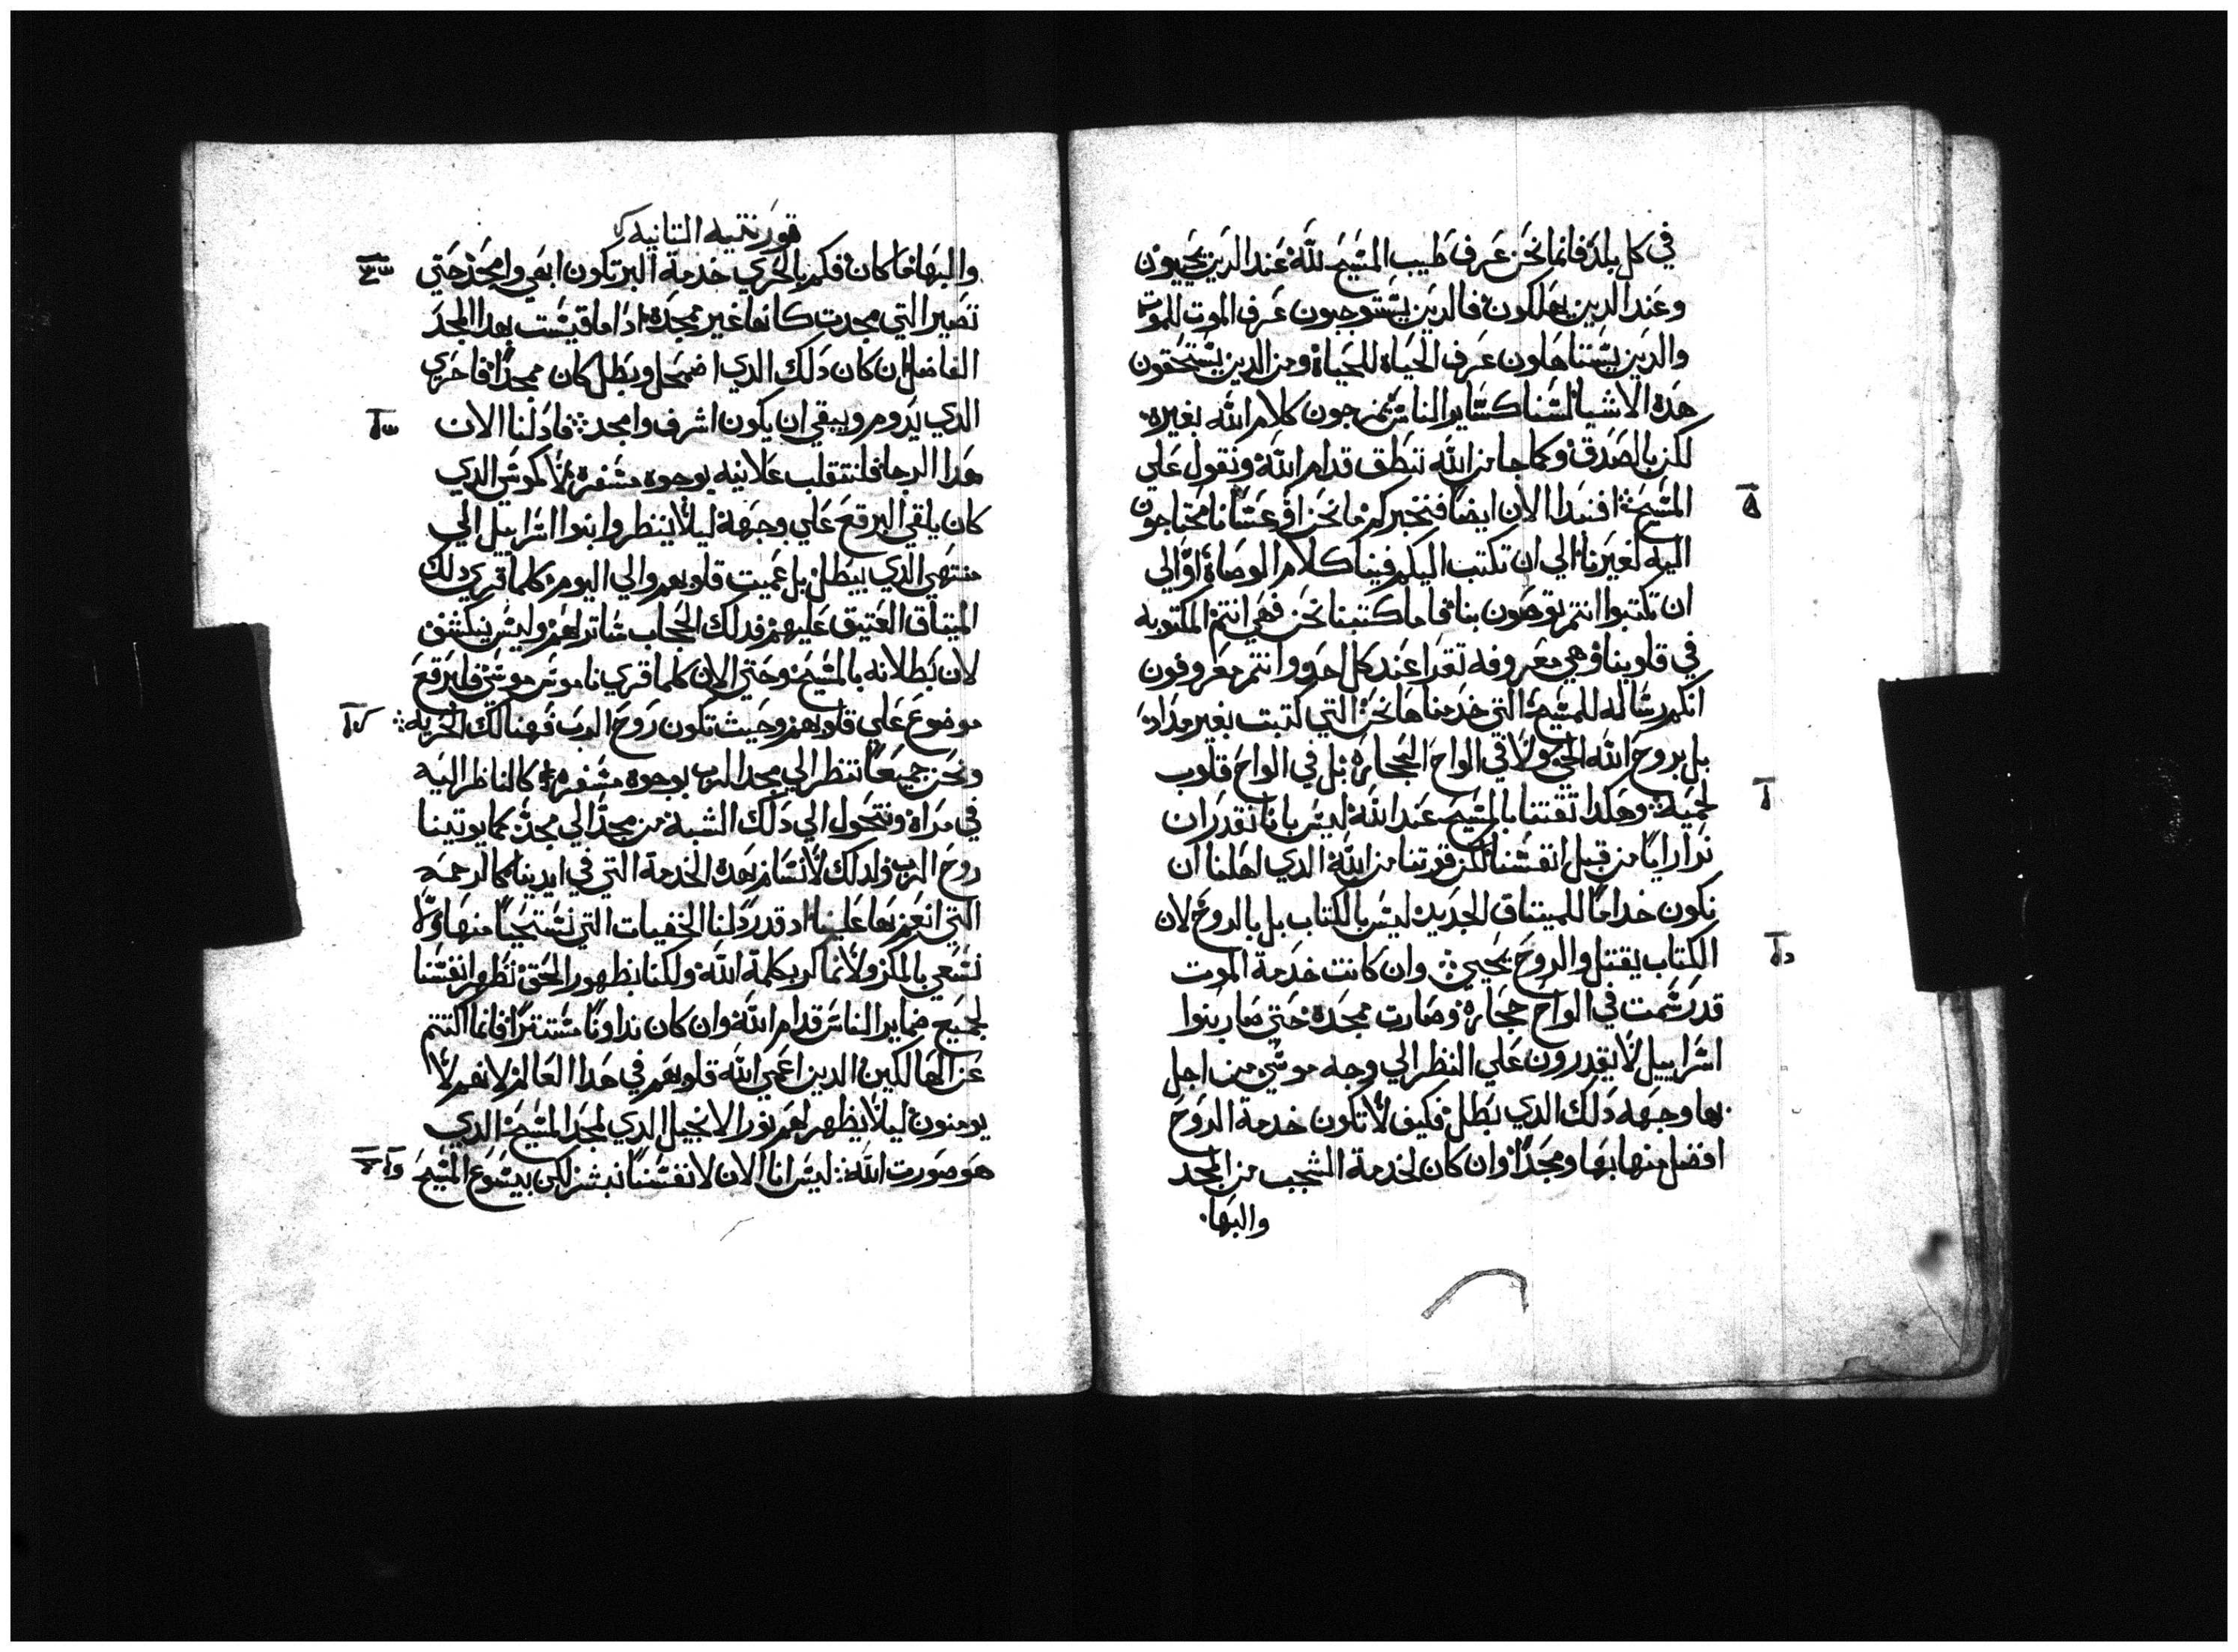 في كل بلد فانما نحن عرف طيب المسيح لله عند الدين يحييون
وعند الدين يهلكون فالدين يستوجبون عرف الموت للموت
والدين يستاهلون عرف الحياه للحياة ومن الدين يستحقون
هده الاشيا لسنا كساير الناس يمزجون كلام الله بغيره
لكن بالصدق وكما جا من الله ننطق قدام الله ونقول علي
المسيح افنبدا الان ايضا فنخبركم ما نحن او عسانا محتاجون
اليه لغيرنا الي ان تكتب اليكم فينا كلام الوصاة او الي
ان تكتبوا انتم توصون بنا فاما كتبنا نحن فهي انتم المكتوبه
في قلوبنا وهي معروفه تقرا عند كل احد وانتم معروفون
انكم رساله للمسيح التي خدمناها نحن التي كتبت بغير مداد
بل بروح الله الحي ولا في الواح الحجاره بل في الواح قلوب
لحميه وهكدا ثقتنا بالمسيح عند الله ليس بانا نقدر ان
نرا رايا من قبل انفسنا لكن قوتنا من الله الدي اهلنا ان
نكون خداما للميتاق الجديد ليس بالكتاب بل بالروح لان
الكتاب يقتل والروح يحيي وان كانت خدمة الموت
قد رسمت في الواح حجاره وصارت ممجدة حتي صار بنوا
اسراييل لا يقدرون علي النظر الي وجه موسي من اجل
بها وجهه دلك الدي بطل فكيف لا تكون خدمة الروح
افضل منها بها ومجدا وان كان لخدمة الشجب من المجد
والبها
قورنتيه التانيه
والبها ما كان فكم بالحري خدمة البر تكون ابهي وامجد حتي
تصير التي مجدت كانها غير ممجدة ادا ما قيست بهدا المجد
الفاضل ان كان دلك الدي اضمحل وبطل كان ممجدا فاحري
الدي يدوم ويبقي ان يكون اشرف وامجد فاد لنا الان
هدا الرجا فلنتقلب علانيه بوجوه مسفرة لا كموسي الدي
كان يلقي البرقع علي وجهه ليلا ينظروا بنوا اسراييل الي
منتهي الدي يبطل بل عميت قلوبهم والي اليوم كلما قري دلك
الميتاق العتيق عليهم فدلك الحجاب ساتر لهم وليس ينكشف
لان بطلانه بالمسيح وحتي الان كلما قري ناموس موسي فالبرقع
موضوع علي قلوبهم وحيث تكون روح الرب فهنالك الحريه
ونحن جميعا ننظر الي مجد الرب بوجوه مسفره كالناظر اليه
في مراة ونتحول الي دلك الشبه من مجد الي مجد كما يوتينا
روح الرب ولدلك لا نسام بهده الخدمة التي في ايدينا كالرحمه
التي انعم بها علينا اد قد ردلنا الخفيات التي نستحيا منها ولا
نسعي بالمكر ولا نماكر بكلمة الله ولكنا بظهور الحق نظهر انفسنا
لجميع ضماير الناس قدام الله وان كان نداونا مستترا فانما اكتتم
عن الهالكين الدين اعمي الله قلوبهم في هدا العالم لانهم لا
يومنون ليلا يظهر لهم نور الانجيل الدي لمجد المسيح الدي
هو صورت الله ليس انا الان لانفسنا نبشر لكن بيسوع المسيح